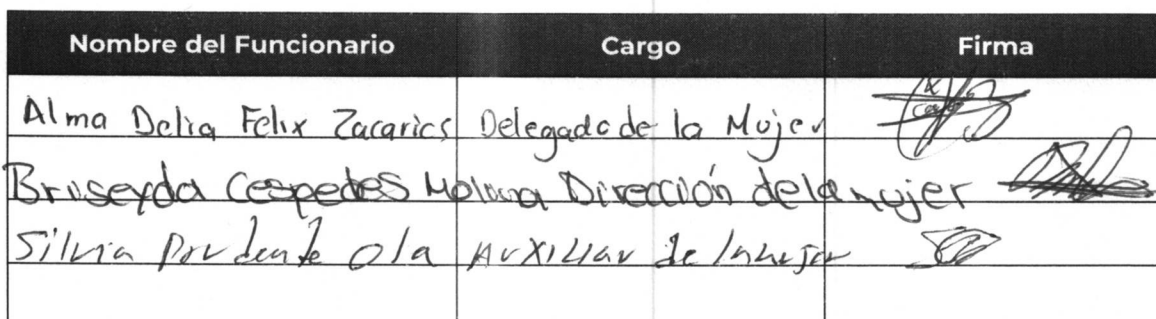 Nombre del Funcionario Cargo Firma
Alma Delia Felix Zacarias Delegada de la Mujer
Briseyda Cespedes Molina Dirección de la mujer
Silvia Prudente Ola Auxiliar de la mujer